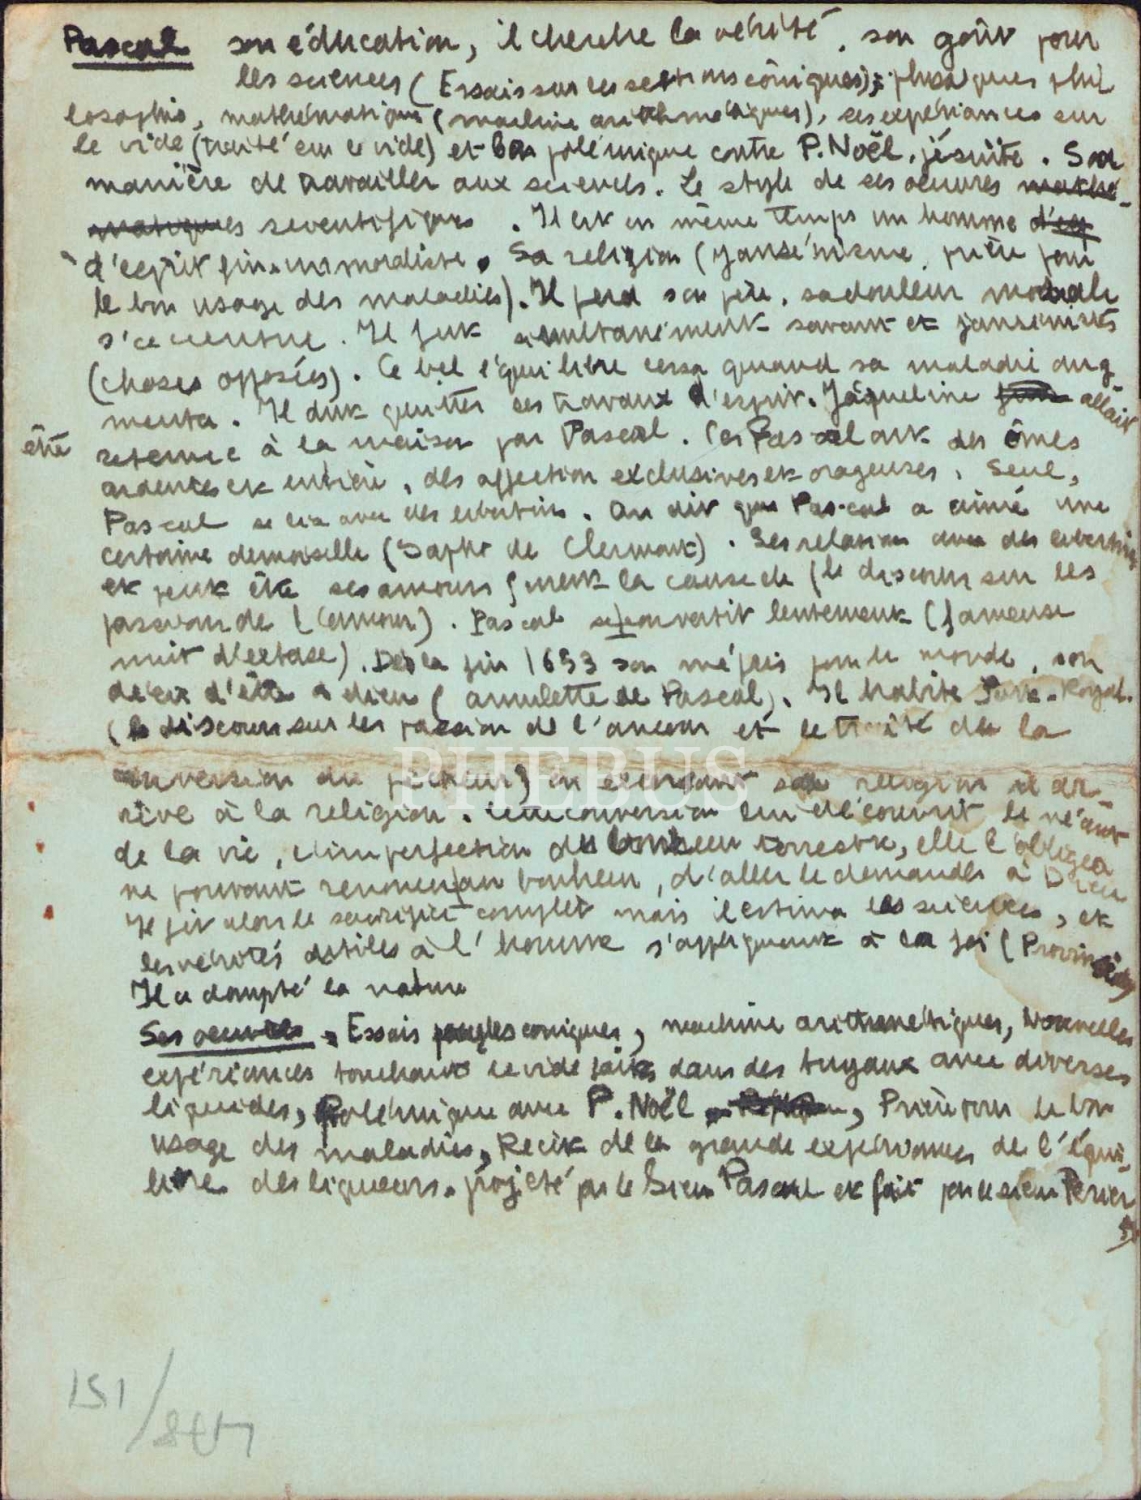 Pascal son éducation, il cherche la vérité, son goût pour
les sciences (Essais sur les sections côniques); phisiques phil
losophie, mathématique (machine arithmétiques), ses expériances sur
le vide (traité sur le vide) et sa polémique contre P. Noël, jésuite. Sa
manière de travailler aux sciences. Le style de ses oeuvres mathé-
matiques scientifiques. Il est en même temps un homme d'es
d'esprit fin, un moraliste. Sa religion (jansénisme, prière pour
le bon usage des maladies). Il perd son père, sa douleur morale
s'accentue. Il fut simultanément savant et janséniste
(choses opposées). Ce bel équilibre cessa quand sa maladie aug
menta. Il dut quitter ses travaux d'esprit. Jaqueline allait
été retenue à la maison par Pascal. Les Pascal ont des âmes
ardentes et entière, des affection exclusives et orageuses. Seul,
Pascal se lia avec des libertins. On dit que Pascal a aimé une
certaine demoiselle (Sapho de Clermont). Ses relation avec des libertins
et peut être ses amours furent la cause de (le discours sur les
passion de l'amour). Pascal se convertit lentement (fameuse
nuit d'extase). Dès la fin 1653 son mépris pour le monde, son
désir d'être à dieu (amulette de Pascal). Il habite Port-Royal.
(le discours sur les passion de l'amour et le traité de la
conversion du pécheur) en son religion il ar-
rive à la religion. Cette conversion lui découvrit le néant
de la vie, l'imperfection du bonheur terrestre, elle l'obligea
ne pouvant renoncer au bonheur, d'aller le demander à Dieu
Il fit alors le sacrifice complet mais il estima les sciences, et
les vérités utiles à l'homme s'appliquent à la foi (Provinciales)
Il a dompté la nature
Ses oeuvres, Essais coniques, machine arithmétiques, Nouvelles
expériances touchant le vide faits dans des tuyaux avec diverses
liquides, Polémique avec P. Noël, Prière pour le bon
usage des maladies, Récit de la grande expériances de l'équi-
libre des liqueurs. projeté par le Sieur Pascal et fait par le sieur Périer
PHEBUS
151/